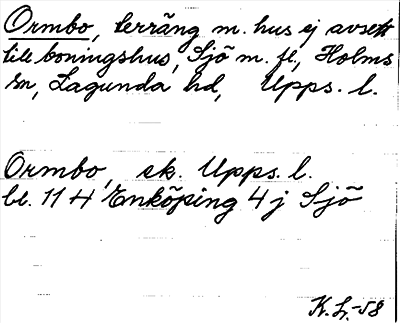 Ormbo, terräng m. hus ej avsett
till boningshus, Sjö m. fl., Holms
sn, Lagunda hd, Upps. l.
Ormbo, ek. Upps. l.
bl. 11 H Enköping 4 j Sjö
K.L.-58